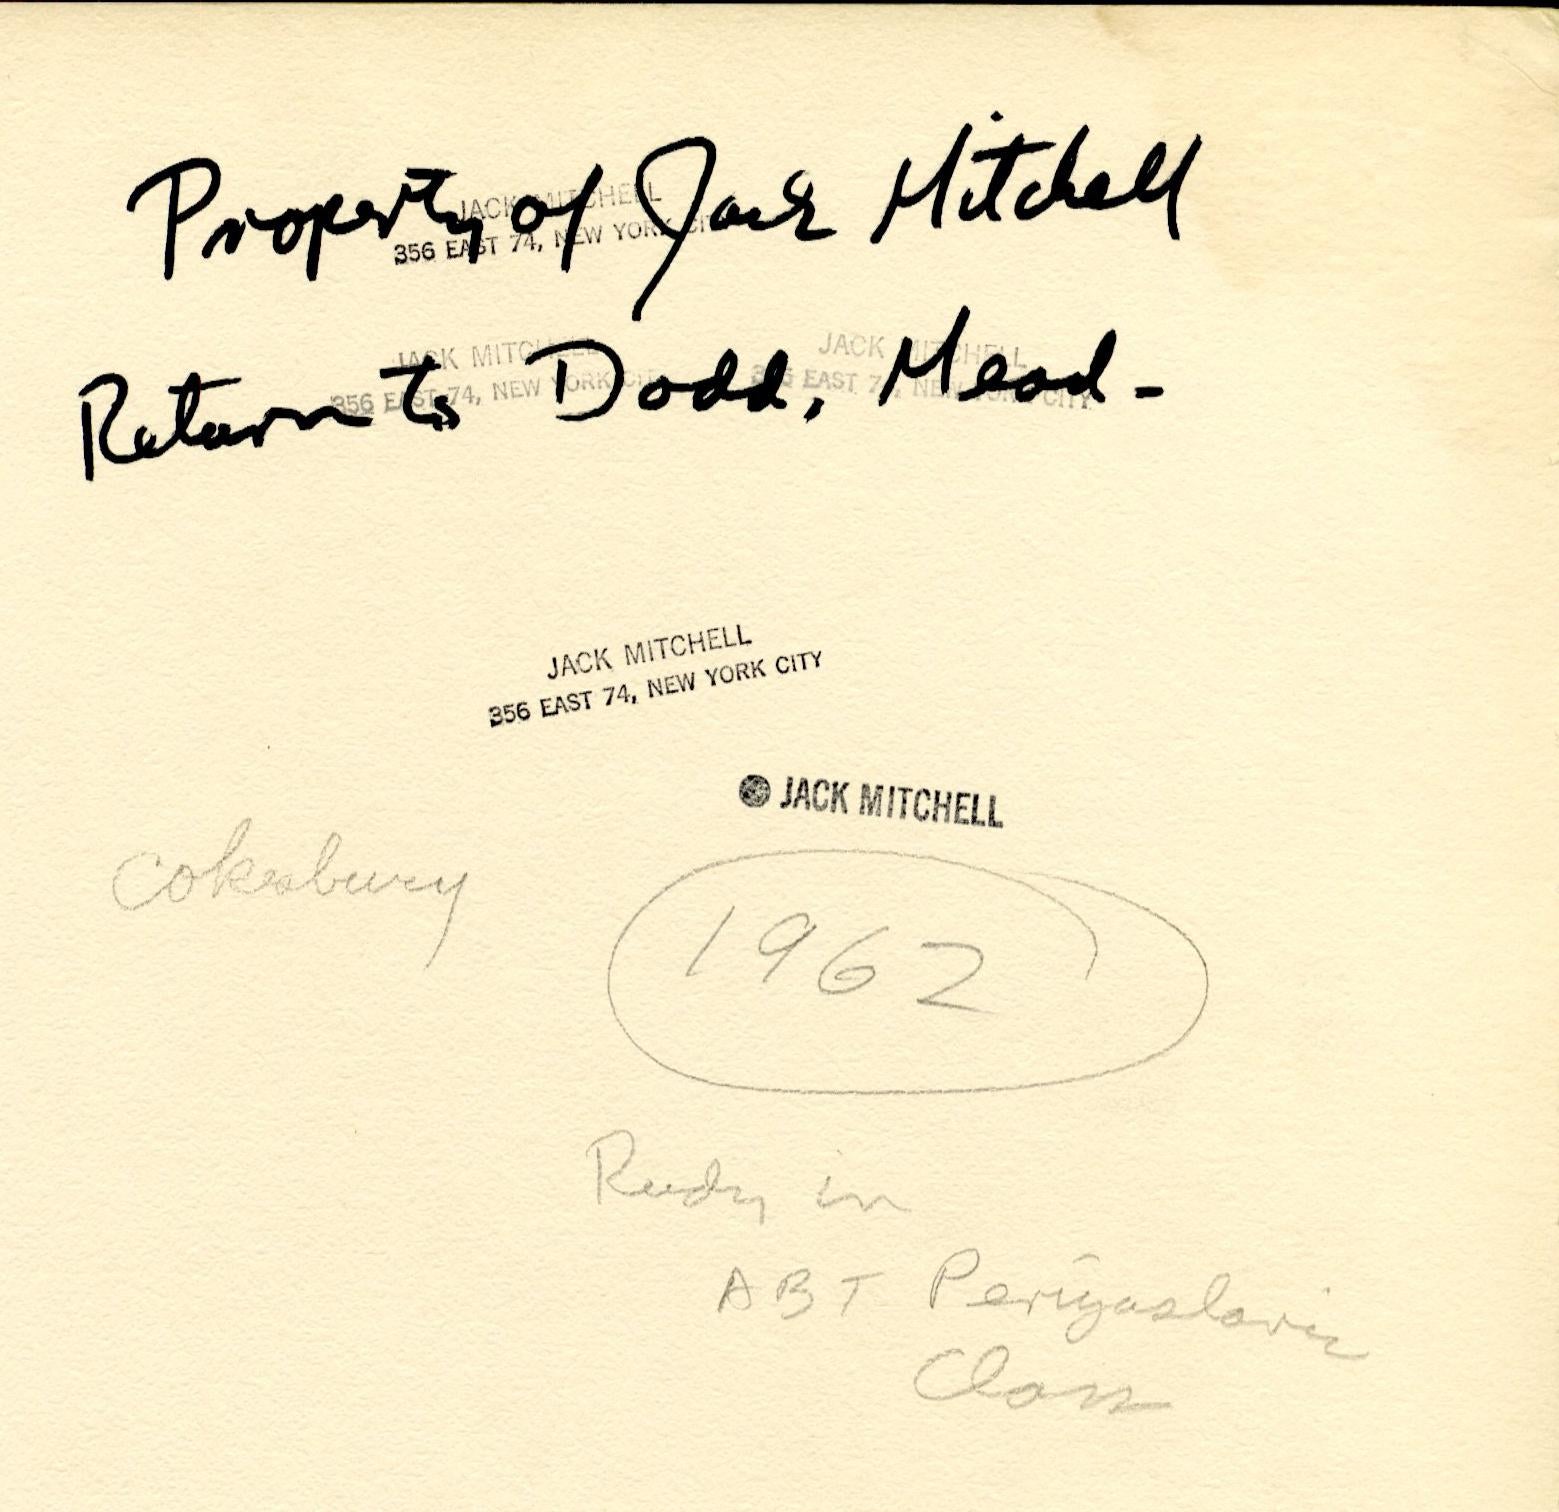 Property of Jack Mitchell
JACK MITCHELL
356 EAST 74, NEW YORK CITY
Return to Dodd, Mead-
JACK MITCHELL
356 EAST 74, NEW YORK CITY
JACK MITCHELL
356 EAST 74, NEW YORK CITY
JACK MITCHELL
356 EAST 74, NEW YORK CITY
JACK MITCHELL
cokesbury
1962
Rudy in
ABT Periyaslavic
Class